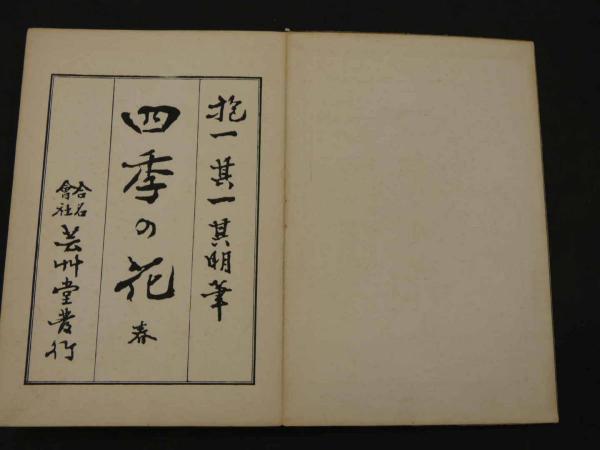 抱一其一其明筆
四季の花 春
合名會社 芸艸堂発行